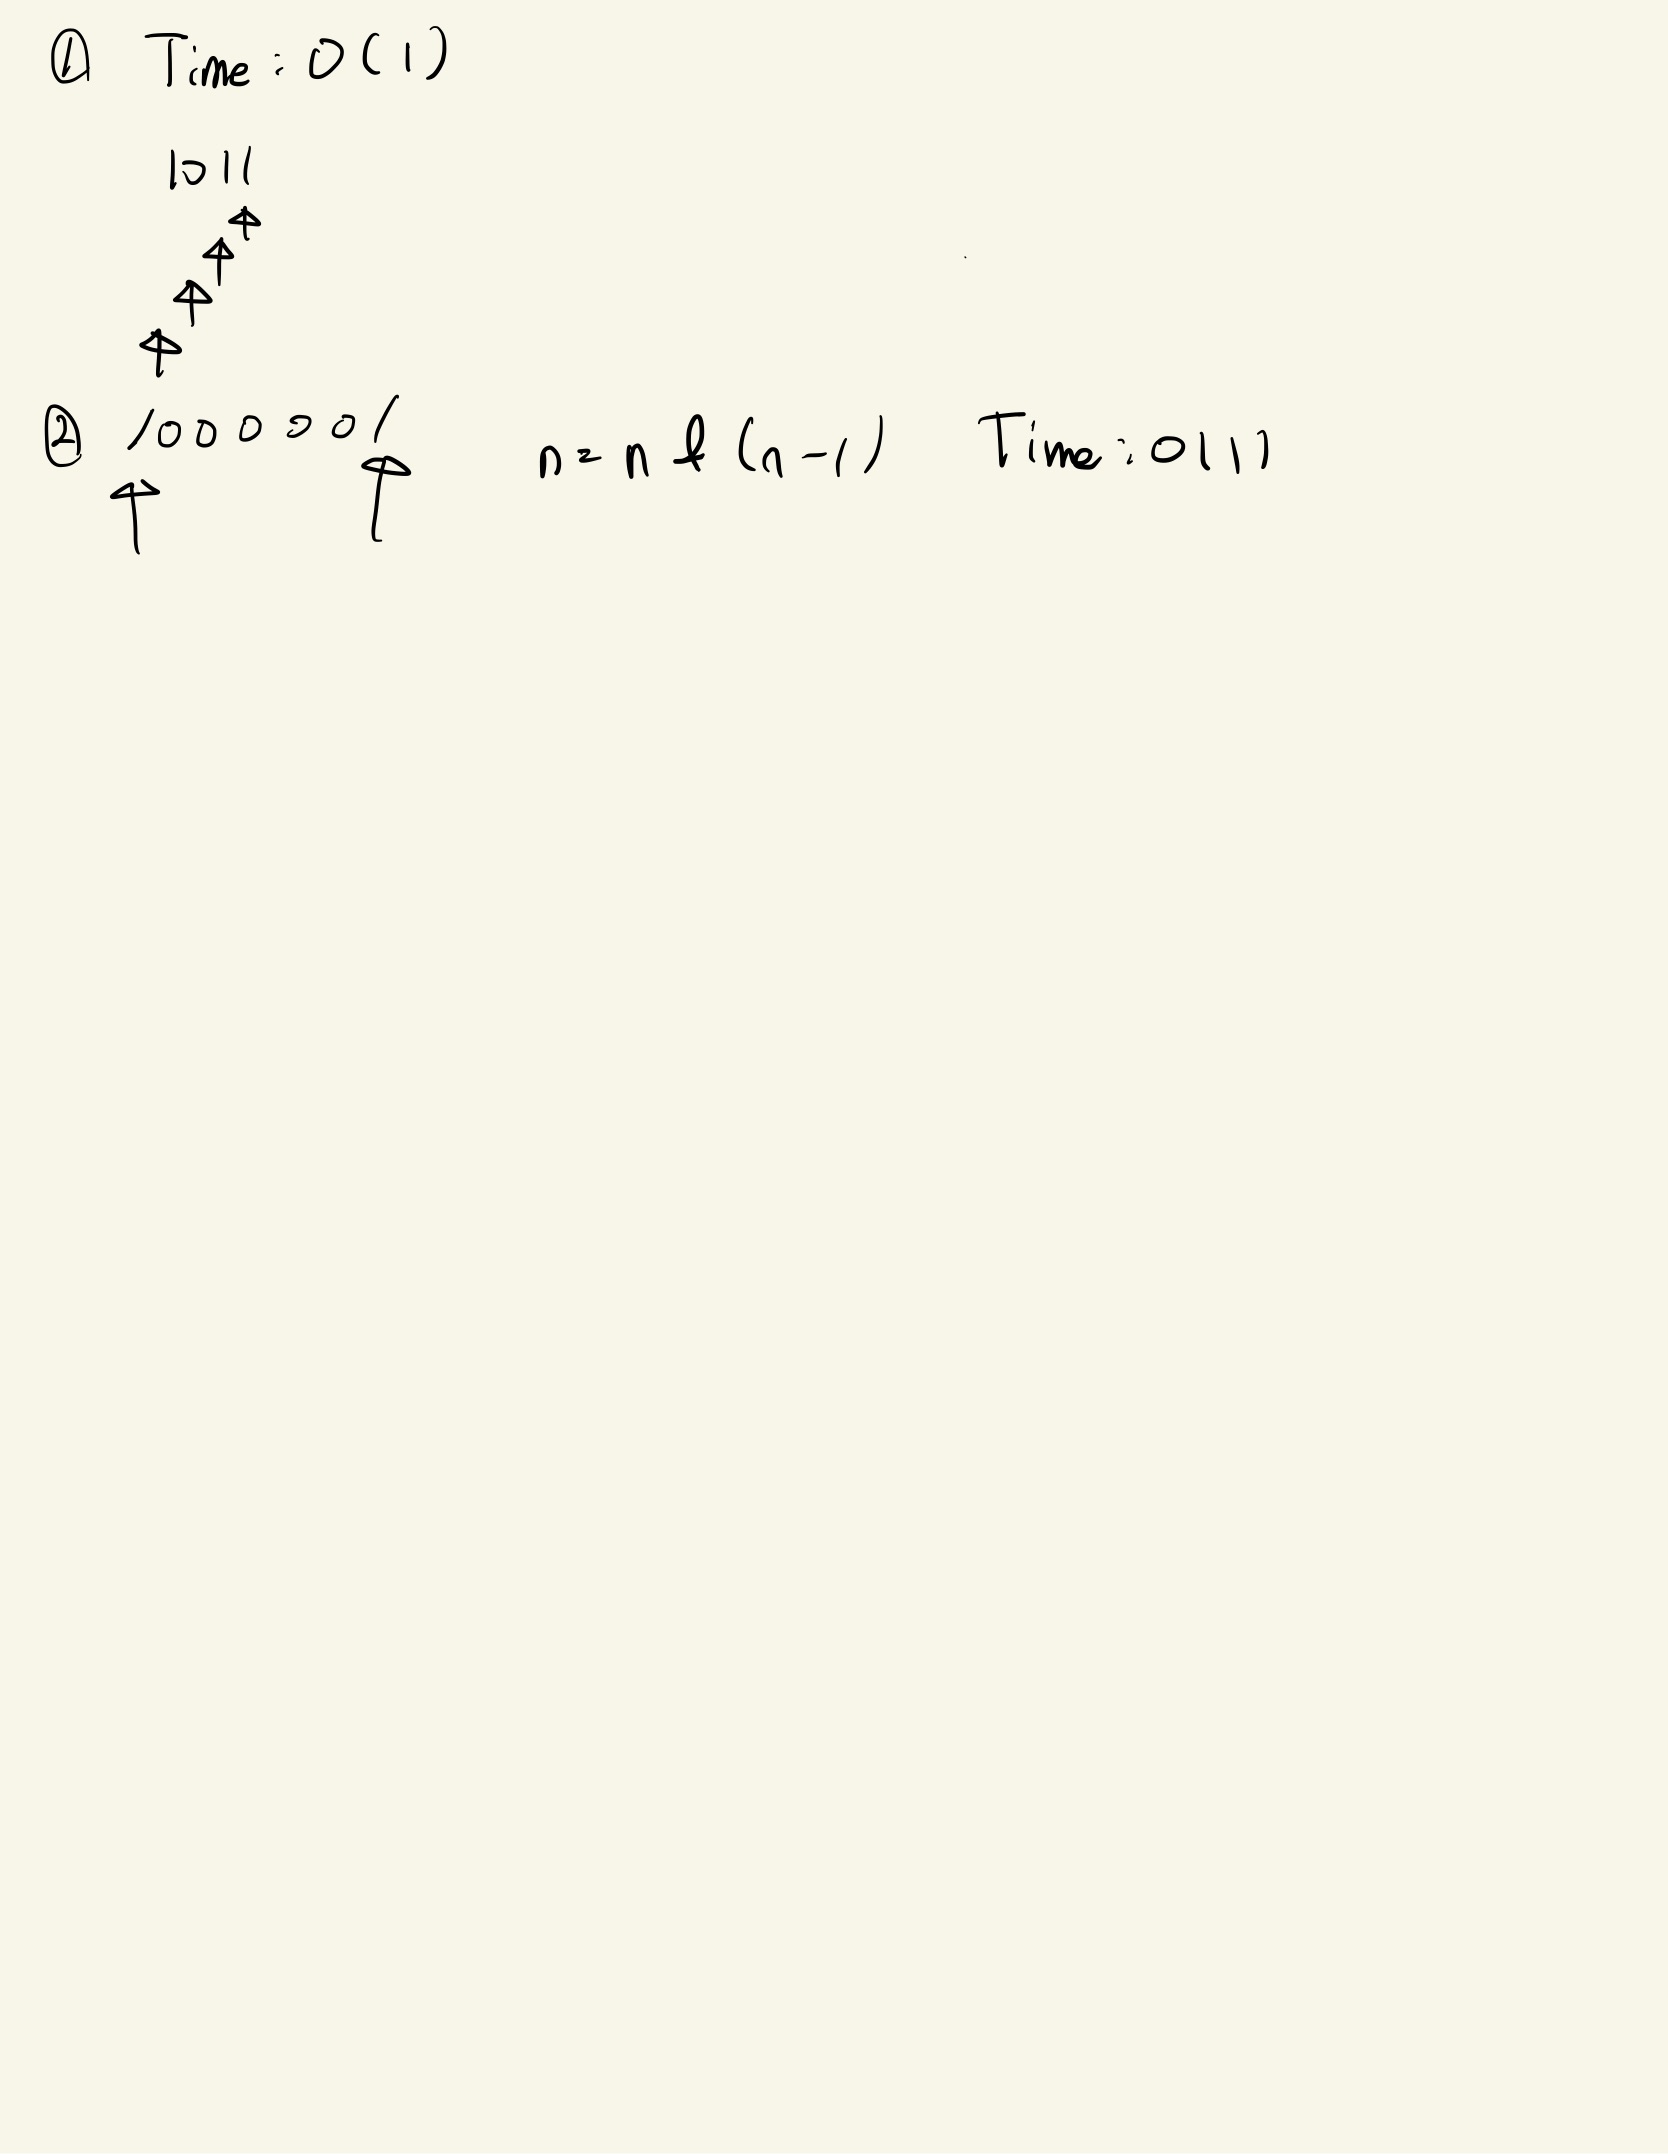 ① Time: O(1)
1011
② 1000001 n = n & (n-1) Time: O(1)